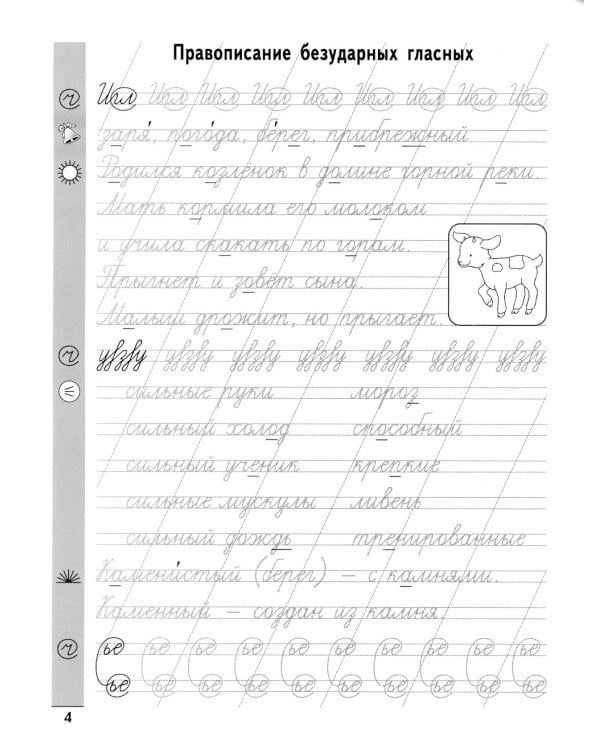 Правописание безударных гласных
Игл Игл Игл Игл Игл Игл Игл Игл Игл
заря́, пого́да, бе́рег, прибре́жный
Родился козлёнок в долине горной реки.
Мать кормила его молоком
и учила скакать по горам.
Прыгнет и зовёт сына.
Малыш дрожит, но прыгает.
увзву увзву увзву увзву увзву увзву увзву
сильные руки мороз
сильный холод способный
сильный ученик крепкие
сильные мускулы ливень
сильный дождь тренированные
Камени́стый (берег) – с камнями.
Каменный – создан из камня.
ье ье ье ье ье ье ье ье ье
ье ье ье ье ье ье ье ье ье
4